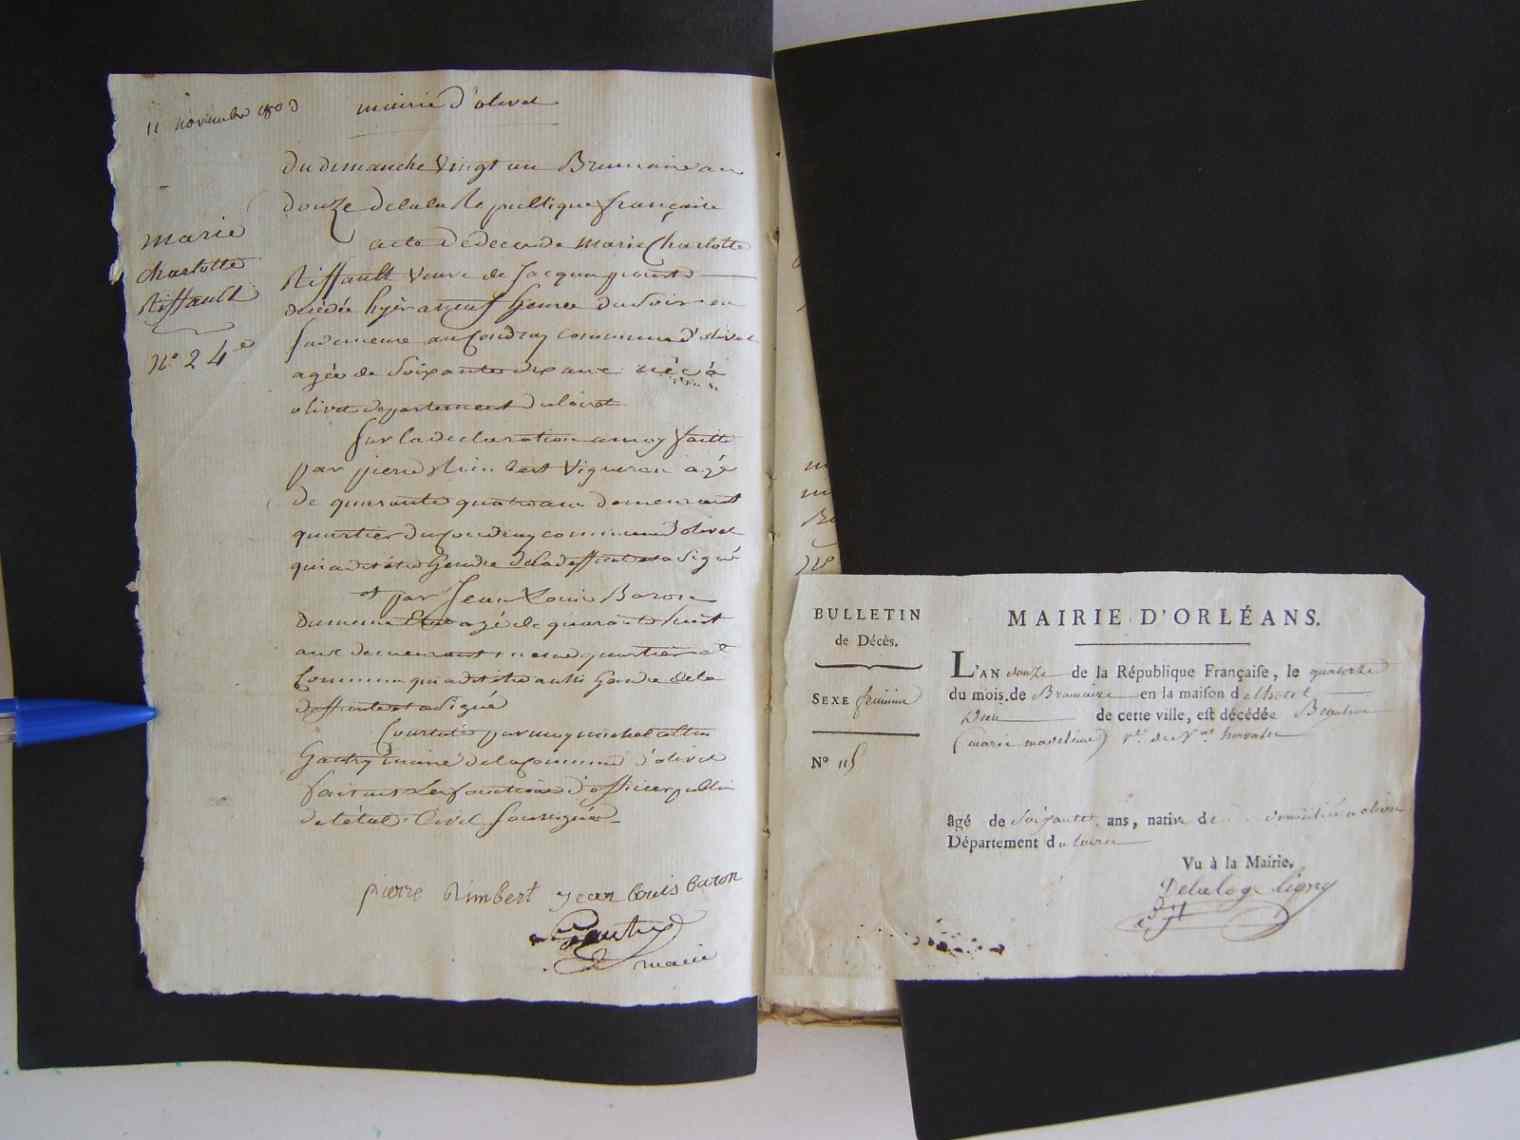 11 novembre 1803
mairie d'olivet
marie
charlotte
Riffault
N.º 24e
du dimanche Vingt un Brumaire an
douze de la la Republique française
acte de deces de marie Charlotte
Riffault Veuve de Jacque
decedée hyér a neuf heures du soir en
sa demeure au Coudray commune d'olivet
agée de soixante dix ans née à
olivet departement du loiret
sur la declaration a moy faitte
par pierre Rimbert Vigneron agé
de quarante quatre ans demeurant
quartier du Coudray commune d'olivet
qui a dit étre Gendre de la deffunte et a signé
et par Jean Louis Baron
agé de quarante huit
ans demeurant meme quartier et
Commune qui a dit étre aussi Gendre de la
deffunte et a signé
Constaté par moy michel
Gautry maire de la Commune d'olivet
faisant les fonctions d'officier public
de l'état Civil soussigné
pierre Rimbert jean louis baron
Gautry
maire
BULLETIN
de Décès.
SEXE feminin
Nº 115
MAIRIE D'ORLÉANS.
L'AN douze de la République Française, le quatorze
du mois de Brumaire en la maison d
Dieu de cette ville, est décédée
(marie madelaine) Ve. de
âgé de soixante ans, native de domiciliée a olivet
Département du loiret
Vu à la Mairie.
Deloge ligny